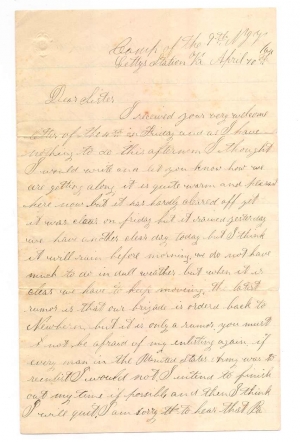 Camp of the 9th N.J.V.
Gettys Station Va April 10th
Dear Sister
I received your very welcome
letter of the 4th on Friday and as I have
nothing to do this afternoon I thought
I would write and let you know how we
are getting along it is quite warm and pleasant
here now but it has hardly cleared off yet
it was clear on friday but it rained yesterday
we have another clear day today but I think
it will rain before morning we do not have
much to do in dull weather but when it is
clear we have to keep moving, the latest
rumor is that our brigade is ordered back to
Newbern but it is only a rumor you must
not be afraid of my enlisting again if
every man in the United States Army was to
reenlist I would not I intend to finish
out my time if possible and then I think
I will quit, I am sorry to hear that